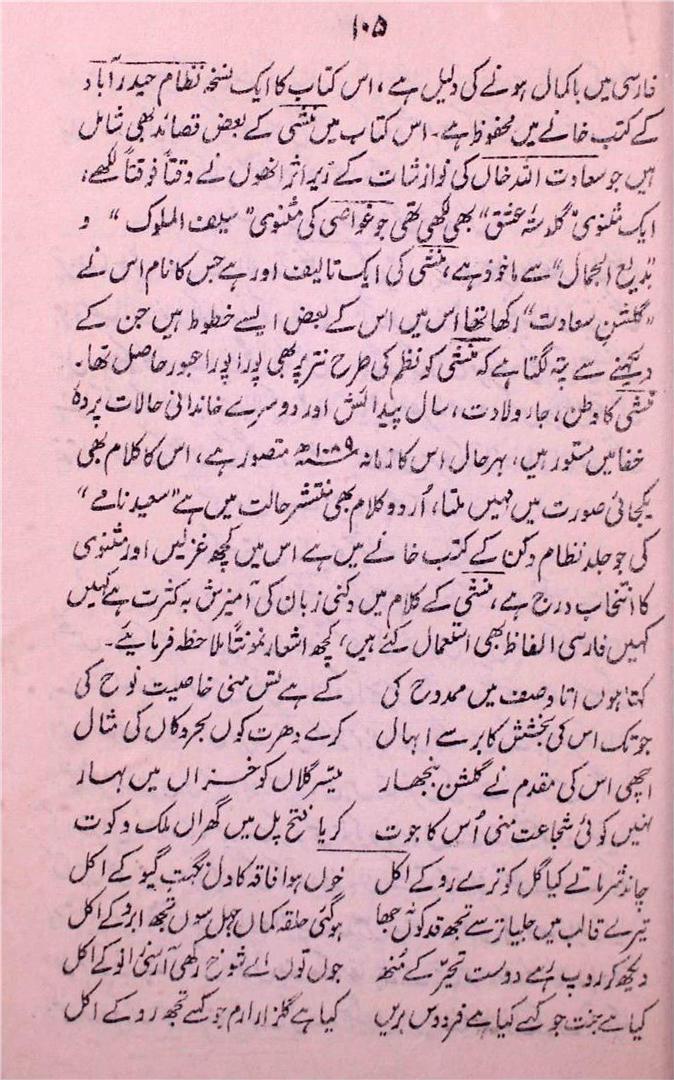 ۱۰۵
فارسی میں باکمال ہونے کی دلیل ہے، اس کتاب کا ایک نسخہ نظام حیدرآباد
کے کتب خانے میں محفوظ ہے۔ اس کتاب میں منشی کے بعض قصائد بھی شامل
ہیں جو سعادت اللہ خاں کی نوازشات کے زیر اثر انھوں نے وقتاً فوقتاً لکھے،
ایک مثنوی "گلدستۂ عشق" بھی لکھی تھی جو غواصی کی مثنوی "سیف الملوک" و
"بدیع الجمال" سے ماخوذ ہے، منشی کی ایک تالیف اور ہے جس کا نام اس نے
"گلشن سعادت" رکھا تھا اس میں اس کے بعض ایسے خطوط ہیں جن کے
دیکھنے سے پتہ لگتا ہے کہ منشی کو نظم کی طرح نثر پر بھی پورا پورا عبور حاصل تھا۔
منشی کا وطن، جاء ولادت، سال پیدائش اور دوسرے خاندانی حالات پردۂ
خفا میں مستور ہیں، بہر حال اس کا زمانہ ۱۰۸۹ھ متصور ہے، اس کا کلام بھی
یکجائی صورت میں نہیں ملتا، اُردو کلام بھی منتشر حالت میں ہے "سعید نامے"
کی جو جلد نظام دکن کے کتب خانے میں ہے اس میں کچھ غزلیں اور مثنوی
کا انتخاب درج ہے، منشی کے کلام میں دکنی زبان کی آمیزش بہ کثرت ہے کہیں
کہیں فارسی الفاظ بھی استعمال کئے ہیں، کچھ اشعار نمونتاً ملاحظہ فرمایئے۔
کہتا ہوں اتا وصف میں ممدوح کی کے ہے تس منی خاصیت نوح کی
جو تک اس کی بخشش کا برسے ابہال کرے دھرت کوں بحر و کاں کی مثال
اچھی اس کی مقدم نے گلشن بنجھار میسر گلاں کو خزاں میں بہار
نہیں کوئی شجاعت منی اُس کا جوت کریا فتح پل میں گھراں ملک و کوت
چاند شرماتے کیا گل کو ترے رو کے اکل خوں ہوا فاقہ کا دل نگہت گیو کے اکل
تیرے قالب میں جلیاز سے تجھ قد کوں جھا ہو گئی حلقہ کماں جہل سوں تجھ ابرو کے اکل
دیکھ کر روپ اے دوست تحیّر کے منھ جوں توں اے شوخ رکھی آرسنی انو کے اکل
کیا ہے جنت جو کہے کیا ہے فردوس بریں کیا ہے گلزار ارم جو کہے تجھ رو کے اکل